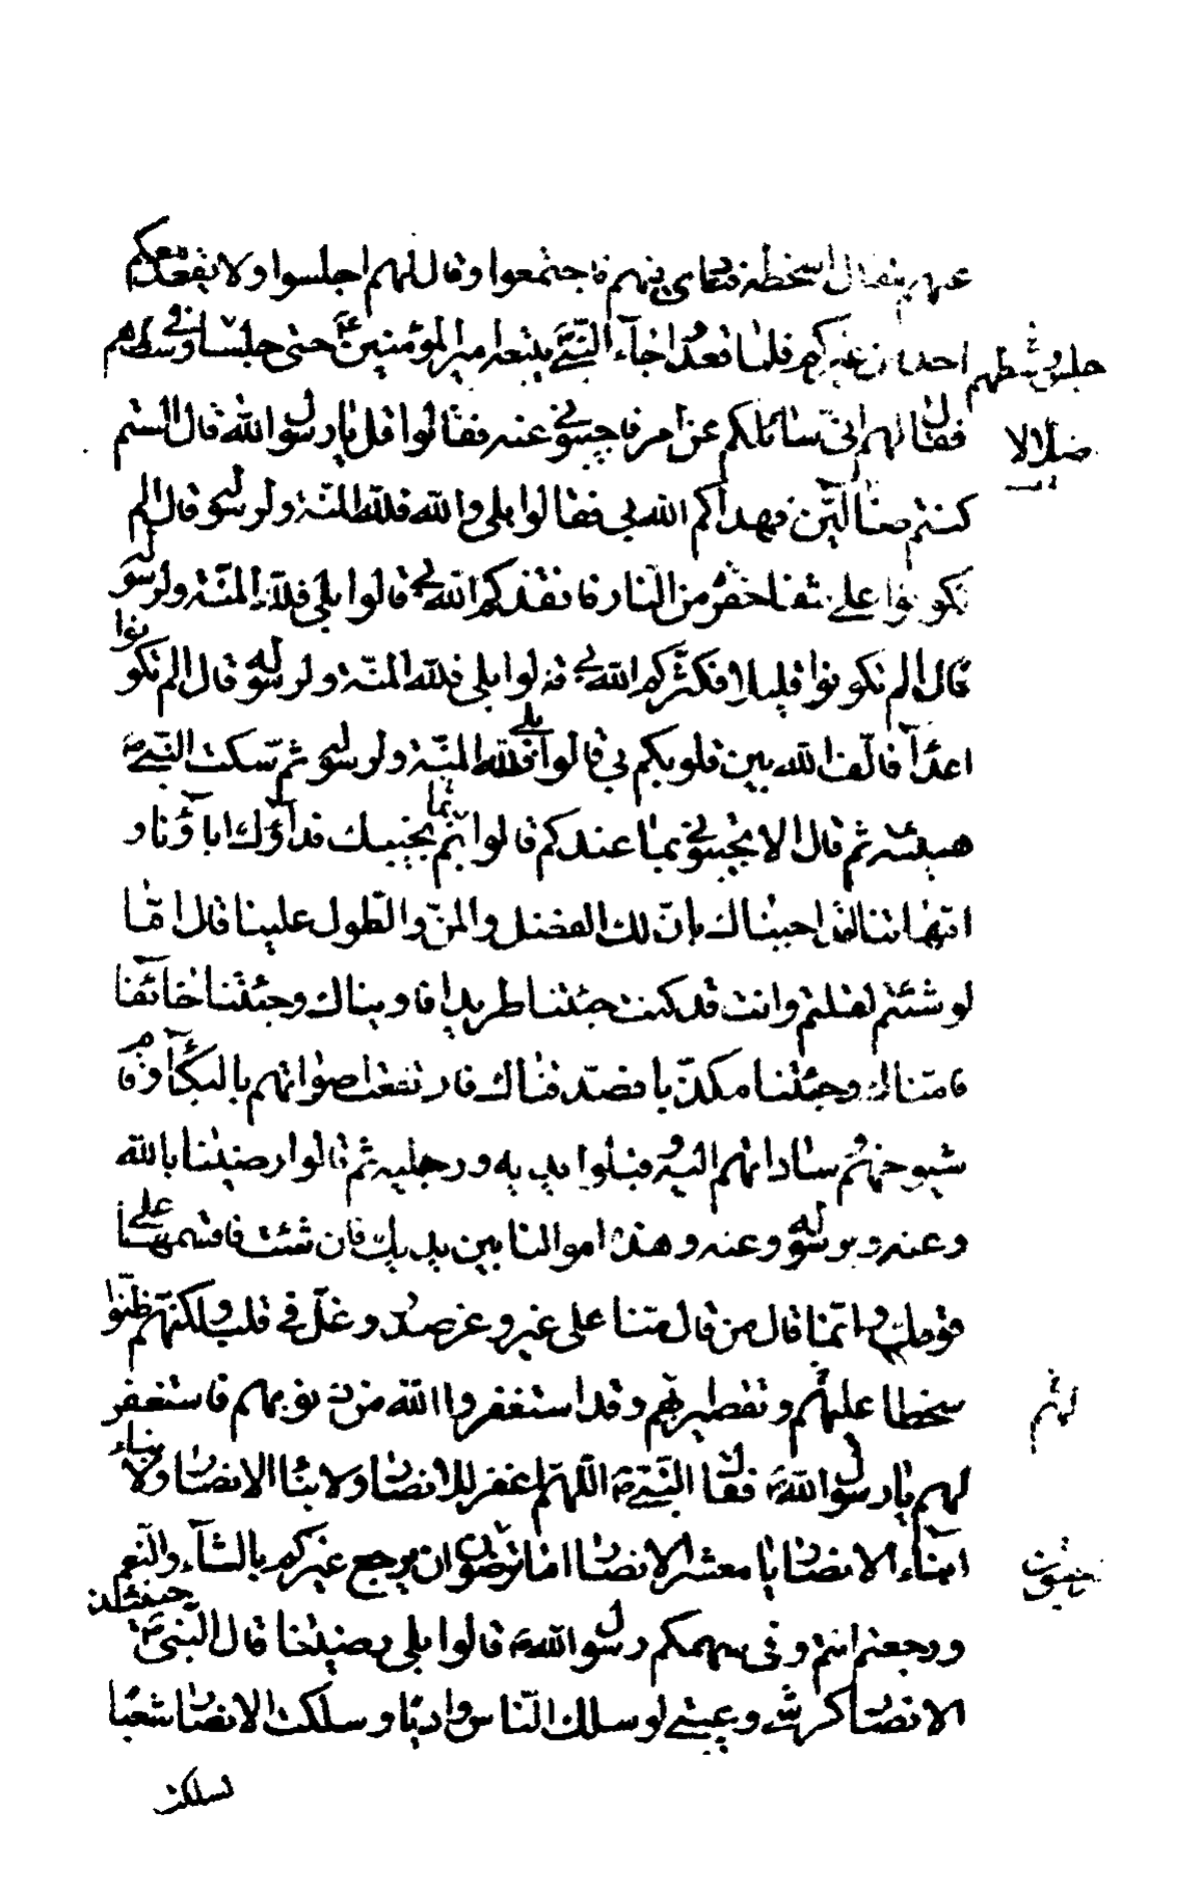 عنهم مقال اسخطه فنادى فيهم فاجتمعوا وقال لهم اجلسوا ولا يقعد معكم
احد من غيركم فلما قعدوا جاء النبي ص يتبعه امير المؤمنين ع حتى جلسا وسطهم
جلس وسطهم
فقال لهم اني سائلكم عن امر فاجيبوني عنه فقالوا قل يا رسول الله قال الستم
ضلالا
كنتم ضالين فهداكم الله بي فقالوا بلى والله فلله المنة ولرسوله قال الم
تكونوا على شفا حفرة من النار فانقذكم الله بي قالوا بلى فلله المنة ولرسوله
قال الم تكونوا قليلا فكثركم الله بي قالوا بلى فلله المنة ولرسوله قال الم تكونوا
اعداء فالف الله بين قلوبكم بي قالوا بلى فلله المنة ولرسوله ثم سكت النبي ص
هنيئة ثم قال الا تجيبوني بما عندكم قالوا بم نجيبك فداؤك اباؤنا و
امهاتنا لقد اجبناك بان لك الفضل والمن والطول علينا قال اما
لو شئتم لقلتم وانت قد كنت جئتنا طريدا فاويناك وجئتنا خائفا
فامناك وجئتنا مكذبا فصدقناك فارتفعت اصواتهم بالبكاء وقام
شيوخهم وساداتهم اليه وقبلوا يديه ورجليه ثم قالوا رضينا بالله
وعنه وبرسوله وعنه وهذه اموالنا بين يديك فان شئت فاقسمها على
قومك وانما قال من قال منا على غير وغر صدر وغل في قلب ولكنهم ظنوا
سخطا عليهم وتقصيرا بهم وقد استغفروا الله من ذنوبهم فاستغفر
لهم
لهم يا رسول الله ص فقال النبي ص اللهم اغفر للانصار ولابناء الانصار ولابناء
ابناء الانصار يا معشر الانصار اما ترضون ان يرجع غيركم بالشاء والنعم
وترجعون انتم وفي سهمكم رسول الله ص قالوا بلى رضينا قال النبي ص حينئذ
الانصار كرشي وعيبتي لو سلك الناس واديا وسلكت الانصار شعبا
لسلكت